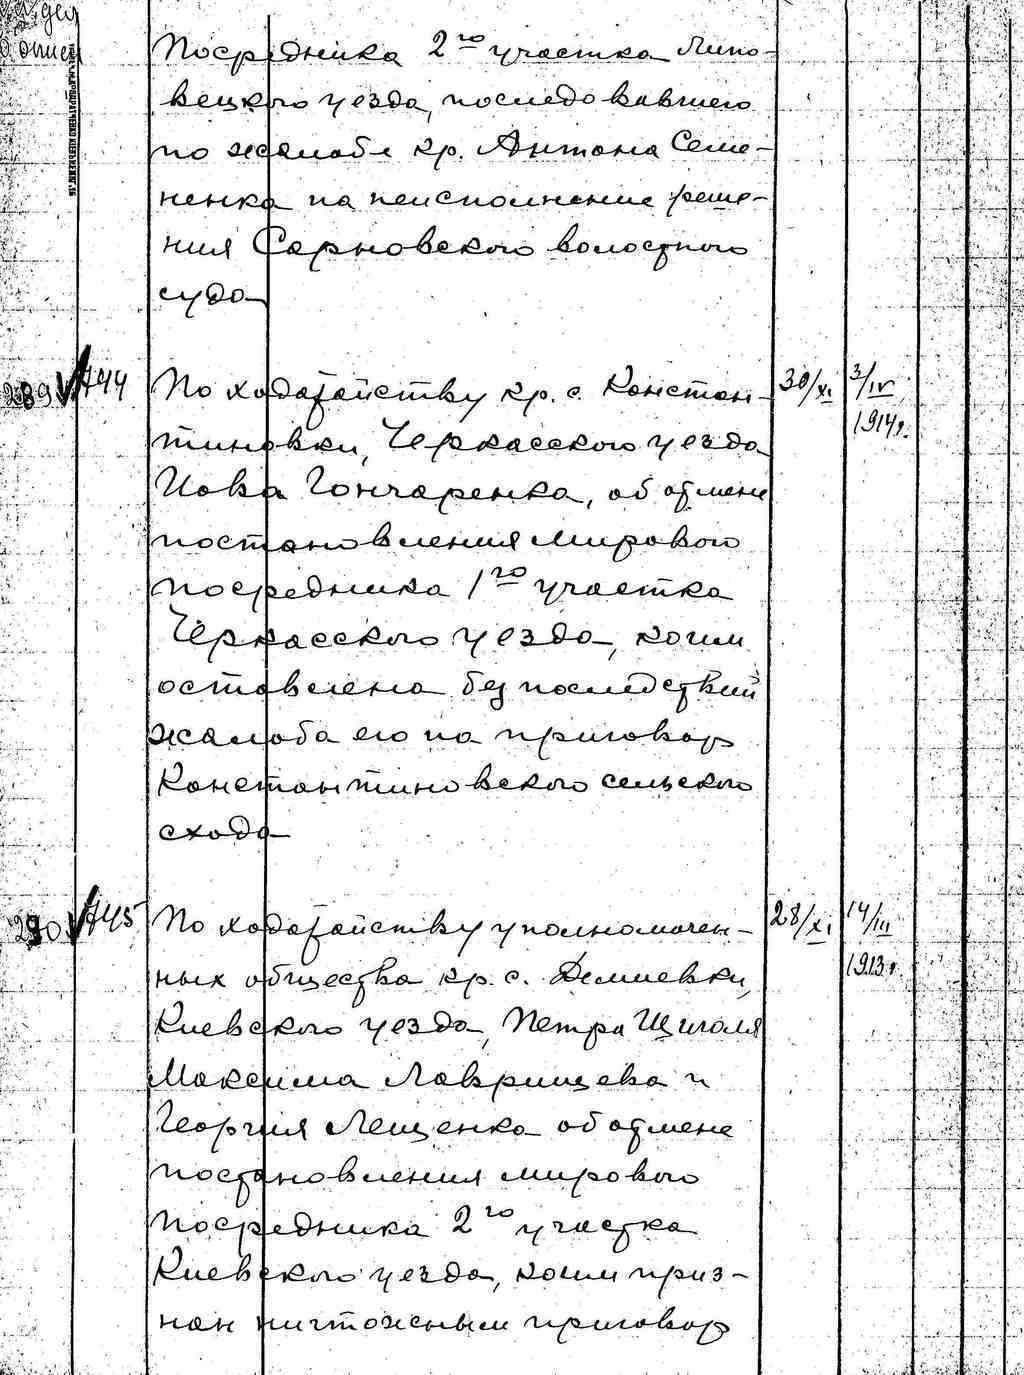 Посредника 2го участка Липо-
вецкого уезда, последовавшего
по жалобе кр. Антона Семе-
ненка на неисполнение реше-
ния Сарновского волостного
суда
289 744 По ходатайству кр. с. Констан- 30/XI 3/IV
тиновки, Черкасского уезда 1914г.
Иова Гончаренка, об отмене
постановления мирового
посредника 1го участка
Черкасского уезда, коим
оставлена без последствий
жалоба его на приговор
Константиновского сельского
схода
290 745 По ходатайству уполномочен- 28/XI 14/III
ных общества кр. с. Демиевки, 1913г.
Киевского уезда, Петра Щиголя
Максима Лаврищева и
Георгия Лещенка об отмене
постановления мирового
посредника 2го участка
Киевского уезда, коим приз-
нан ничтожным приговор